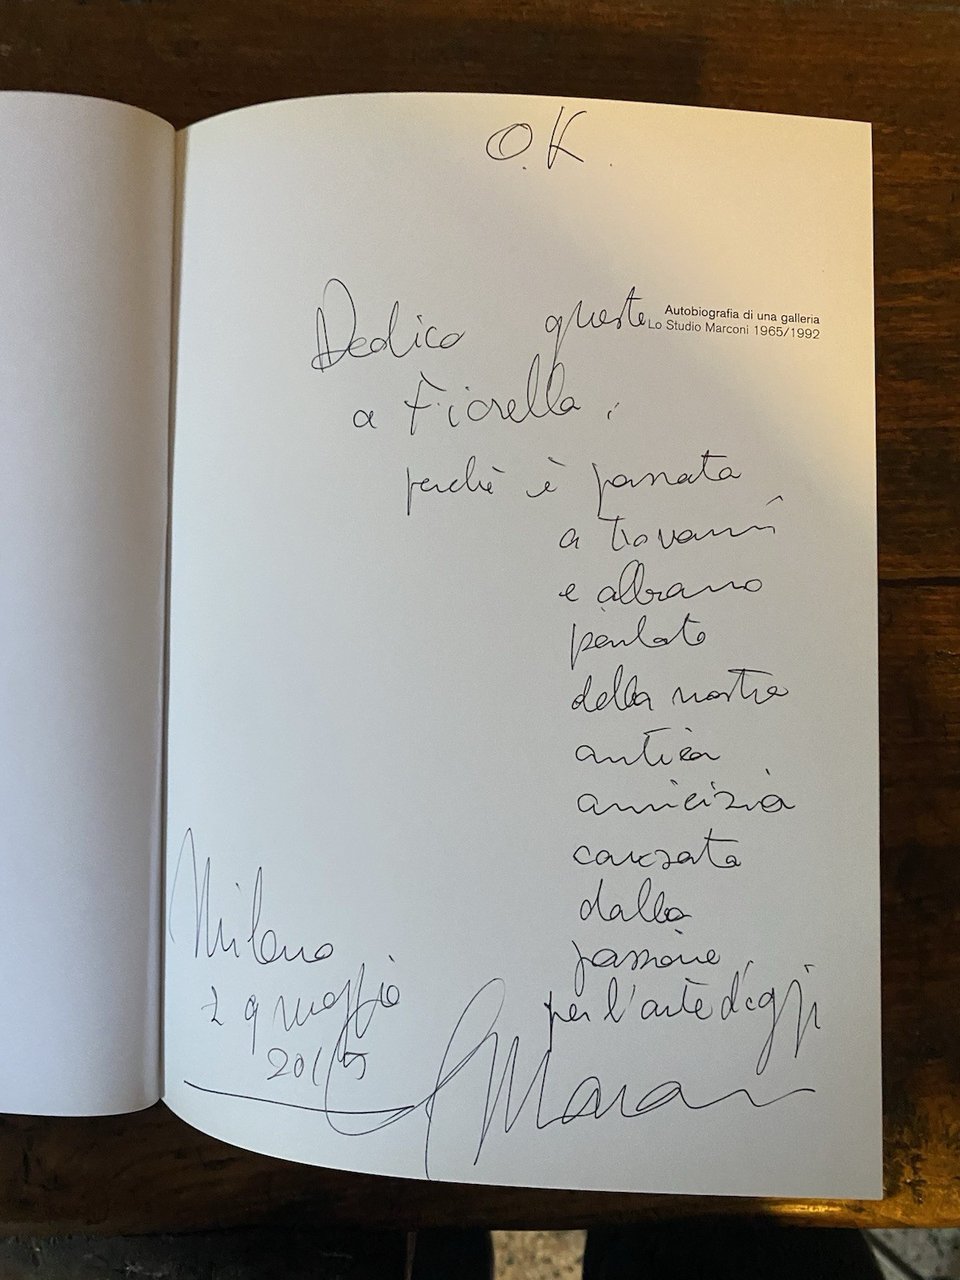 O.K.
Autobiografia di una galleria
Lo Studio Marconi 1965/1992
Dedico queste
a Fiorella,
perchè è passata
a trovarmi
e abbiamo
parlato
della nostra
antica
amicizia
causata
dalla
passione
per l'arte d'oggi
Milano
29 maggio
2015
GMarconi